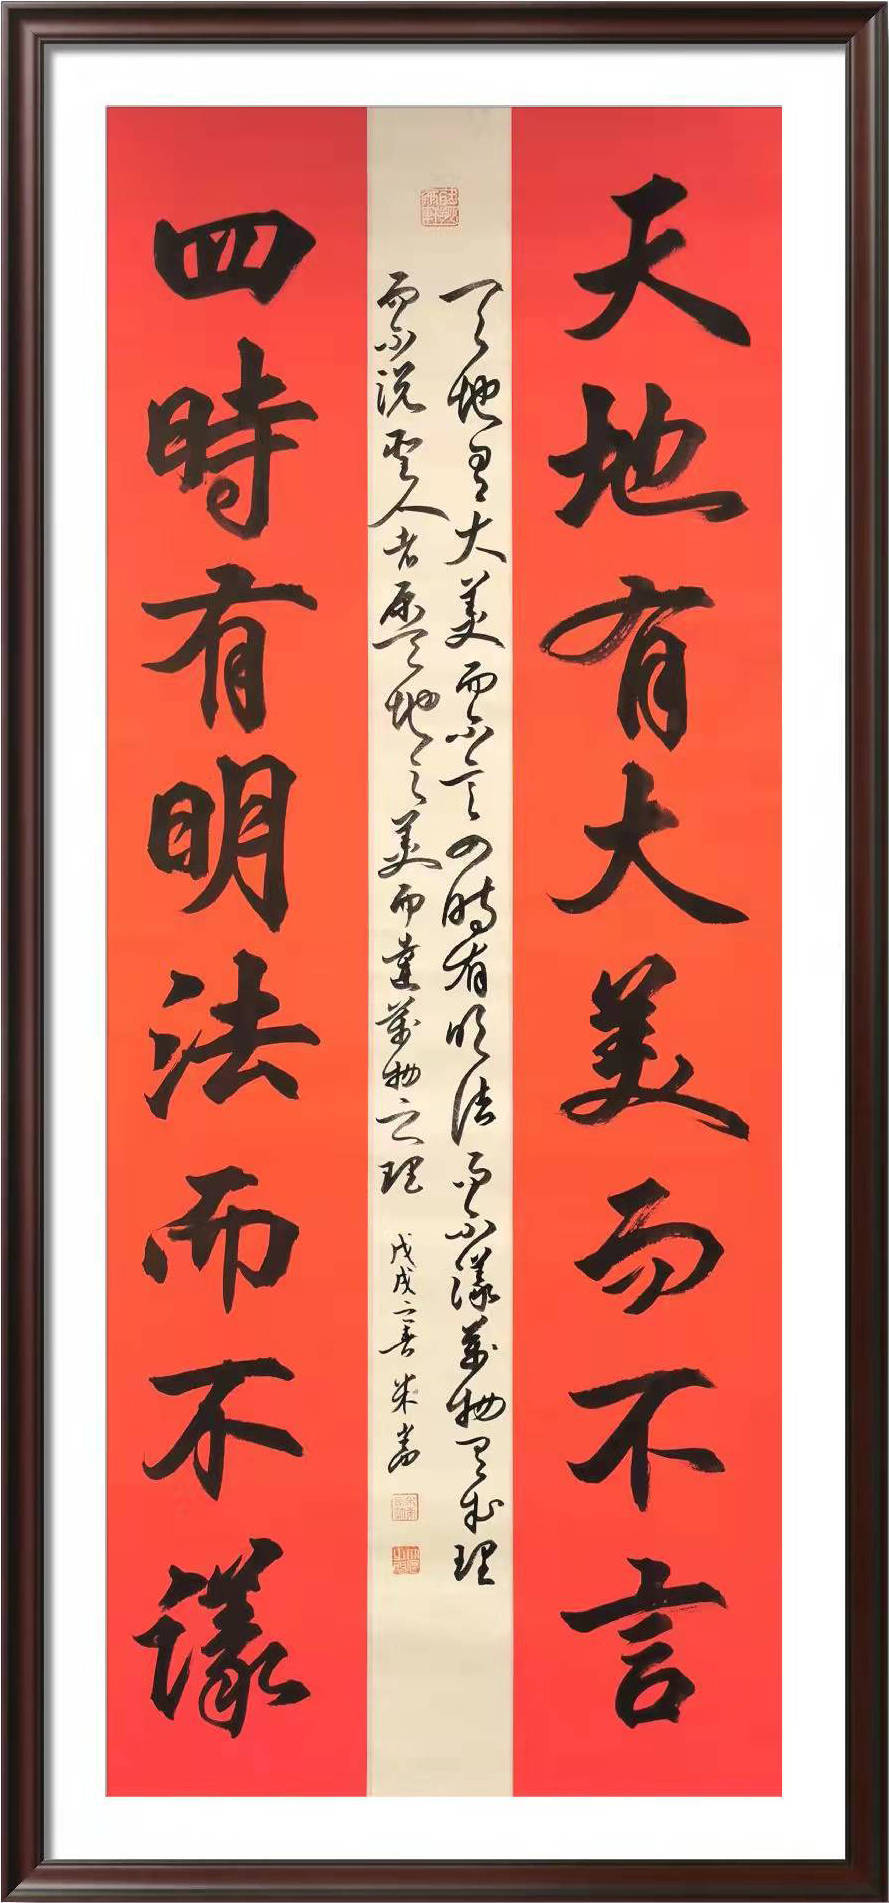 天地有大美而不言
天地有大美而不言四時有明法而不議萬物有成理
而不說聖人者原天地之美而達萬物之理 戊戌之春 米
四時有明法而不議